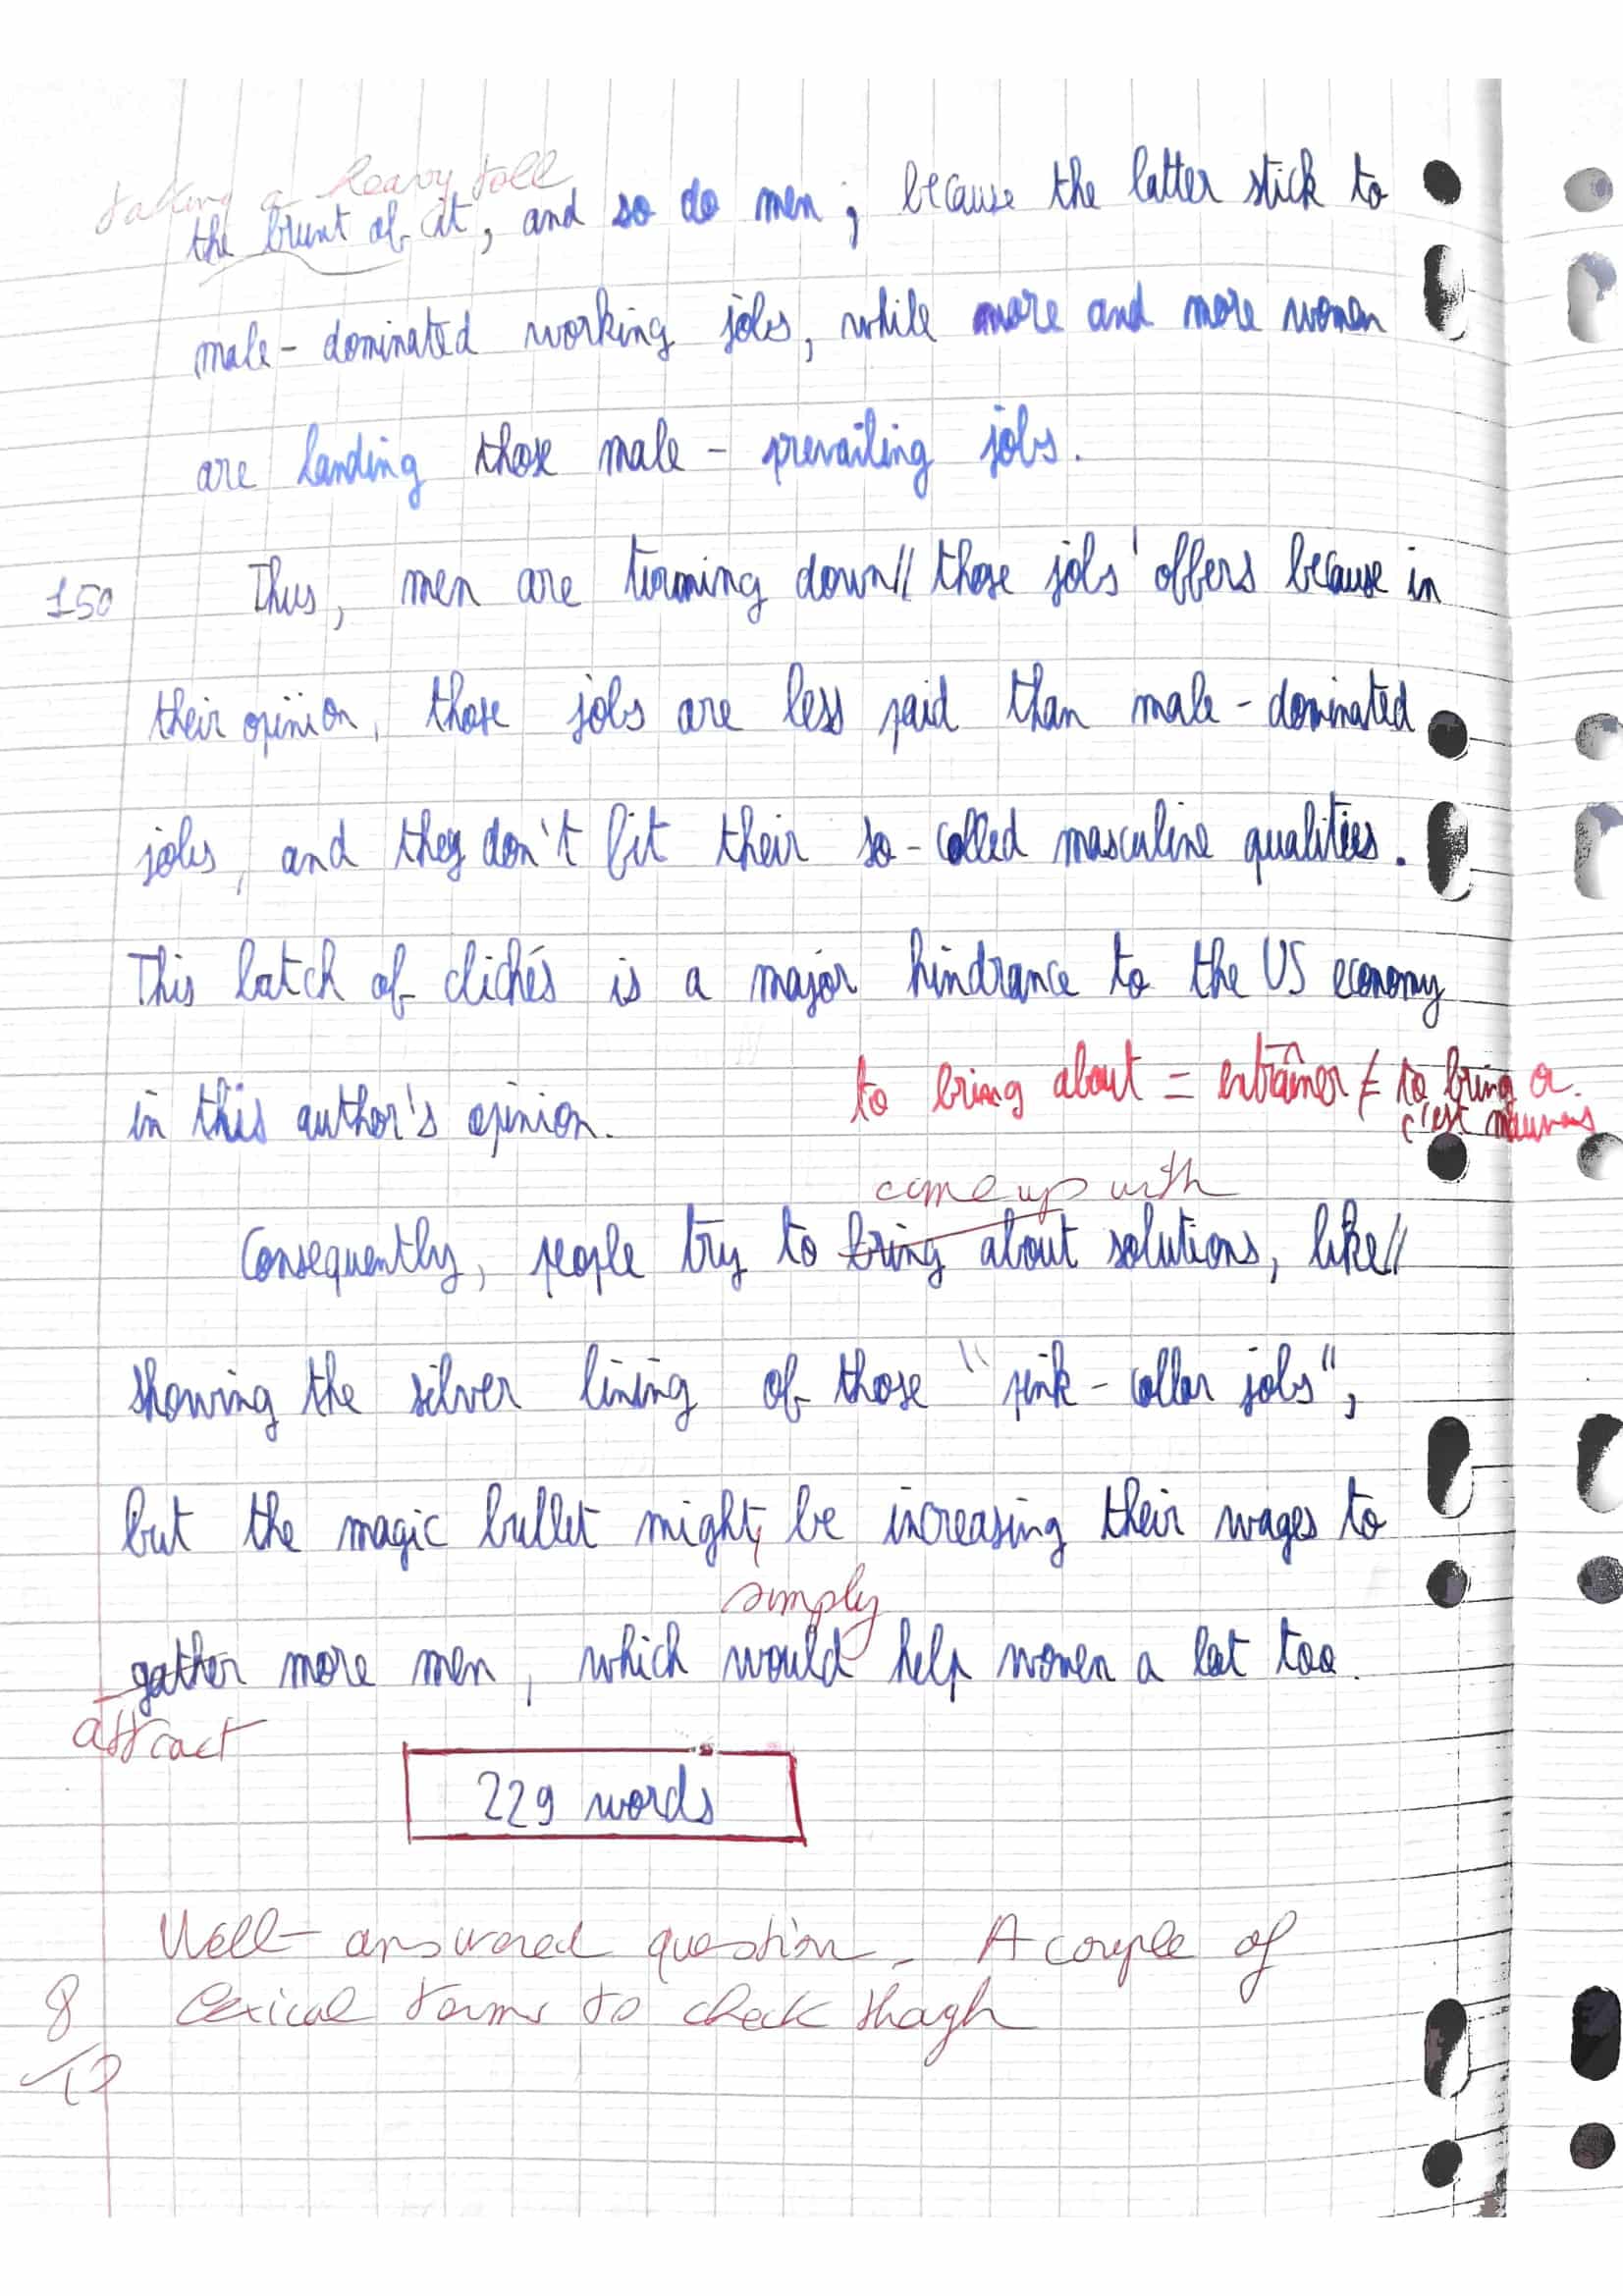 taking a heavy toll
the brunt of it, and so do men ; because the latter stick to
male-dominated working jobs, while more and more women
are landing those male-prevailing jobs.
150 Thus, men are turning down// those jobs' offers because in
their opinion, those jobs are less paid than male-dominated
jobs, and they don't fit their so-called masculine qualities.
This batch of clichés is a major hindrance to the US economy
in this author's opinion.
to bring about = entraîner ≠ to bring a.
c'est mauvais
come up with
Consequently, people try to bring about solutions, like//
showing the silver lining of those "pink-collar jobs",
but the magic bullet might be increasing their wages to
simply
gather more men, which would help women a lot too.
attract
229 words
Well-answered question. A couple of
8 lexical terms to check though